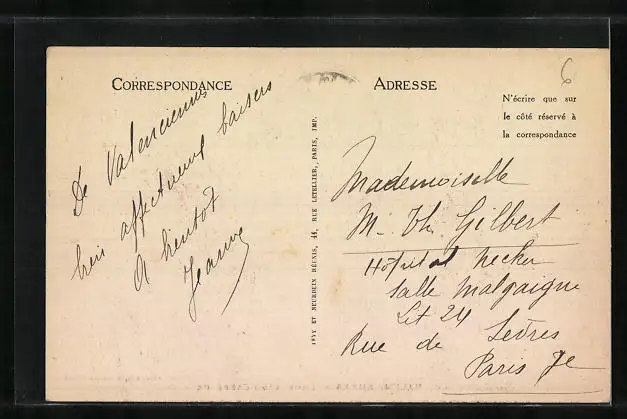 CORRESPONDANCE
De Valenciennes
bien affectueux baisers
A bientot
Jeanne
LEVY ET NEURDEIN RÉUNIS, 44, RUE LETELLIER, PARIS, IMP.
ADRESSE
6
N'écrire que sur
le côté réservé à
la correspondance
Mademoiselle
M. Th. Gilbert
Hôpital Necker
Salle Malgaigne
Lit 24
Rue de Sèvres
Paris 7e